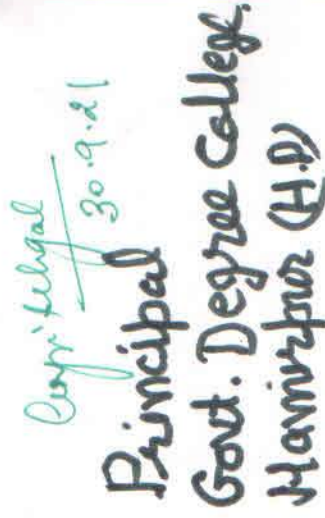 30.9.21
Principal
Govt. Degree College,
Hamirpur (H.P)